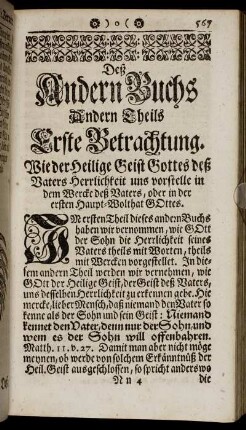 )o(
567
Deß
Andern Buchs
Andern Theils
Erste Betrachtung.
Wie der Heilige Geist Gottes deß
Vaters Herrlichkeit uns vorstelle in
dem Wercke deß Vaters, oder in der
ersten Haupt-Wolthat GOttes.
IM ersten Theil dieses andern Buchs
haben wir vernommen, wie GOtt
der Sohn die Herrlichkeit seines
Vaters theils mit Worten, theils
mit Wercken vorgestellet. In die-
sem andern Theil werden wir vernehmen, wie
GOtt der Heilige Geist, der Geist deß Vaters,
uns desselben Herrlichkeit zu erkennen gebe. Hie
mercke, lieber Mensch, daß niemand den Vater so
kenne als der Sohn und sein Geist: Niemand
kennet den Vater, denn nur der Sohn, und
wem es der Sohn will offenbahren.
Matth. 11. v. 27. Damit man aber nicht möge
meynen, ob werde von solchem Erkänntnüß der
Heil. Geist ausgeschlossen, so spricht anderswo
Nn 4
die